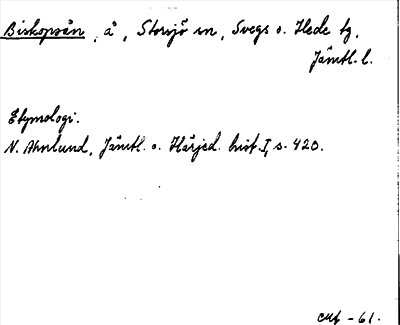 Biskopsån, å, Storsjö sn, Svegs o. Hede tg,
Jämtl. l.
Etymologi.
N. Ahnlund, Jämtl. o. Härjed. hist. I, s. 420.
-61.